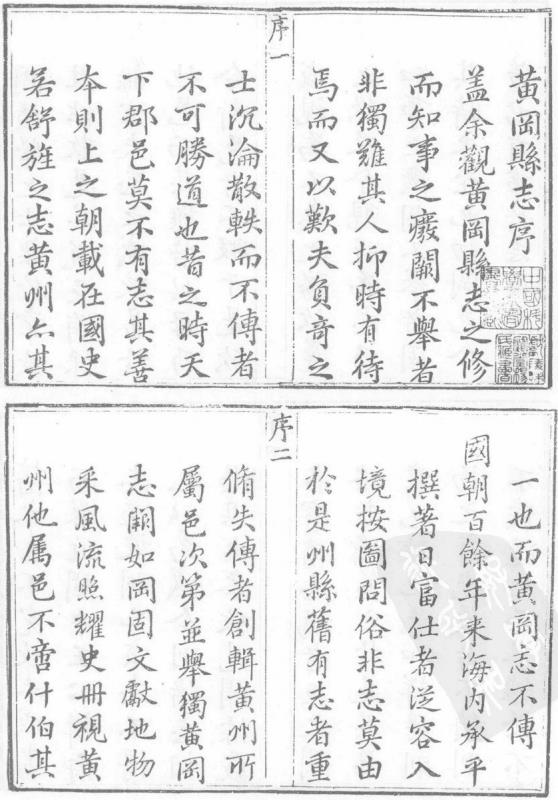 黃岡縣志序
盖余觀黃岡縣志之修
而知事之廢闕不舉者
非獨難其人抑時有待
焉而又以歎夫負竒之
序一
士沉淪散軼而不傳者
不可勝道也昔之時天
下郡邑莫不有志其善
夲則上之朝載在國史
若舒旌之志黃州亦其
一也而黃岡志不傳
國朝百餘年来海内承平
撰著日富仕者泛容入
境按圖問俗非志莫由
扵是州縣舊有志者重
序二
脩失傳者創輯黃州所
屬邑次第並舉獨黃岡
志闕如岡固文獻地物
采風流照耀史冊視黃
州他属邑不啻什伯其